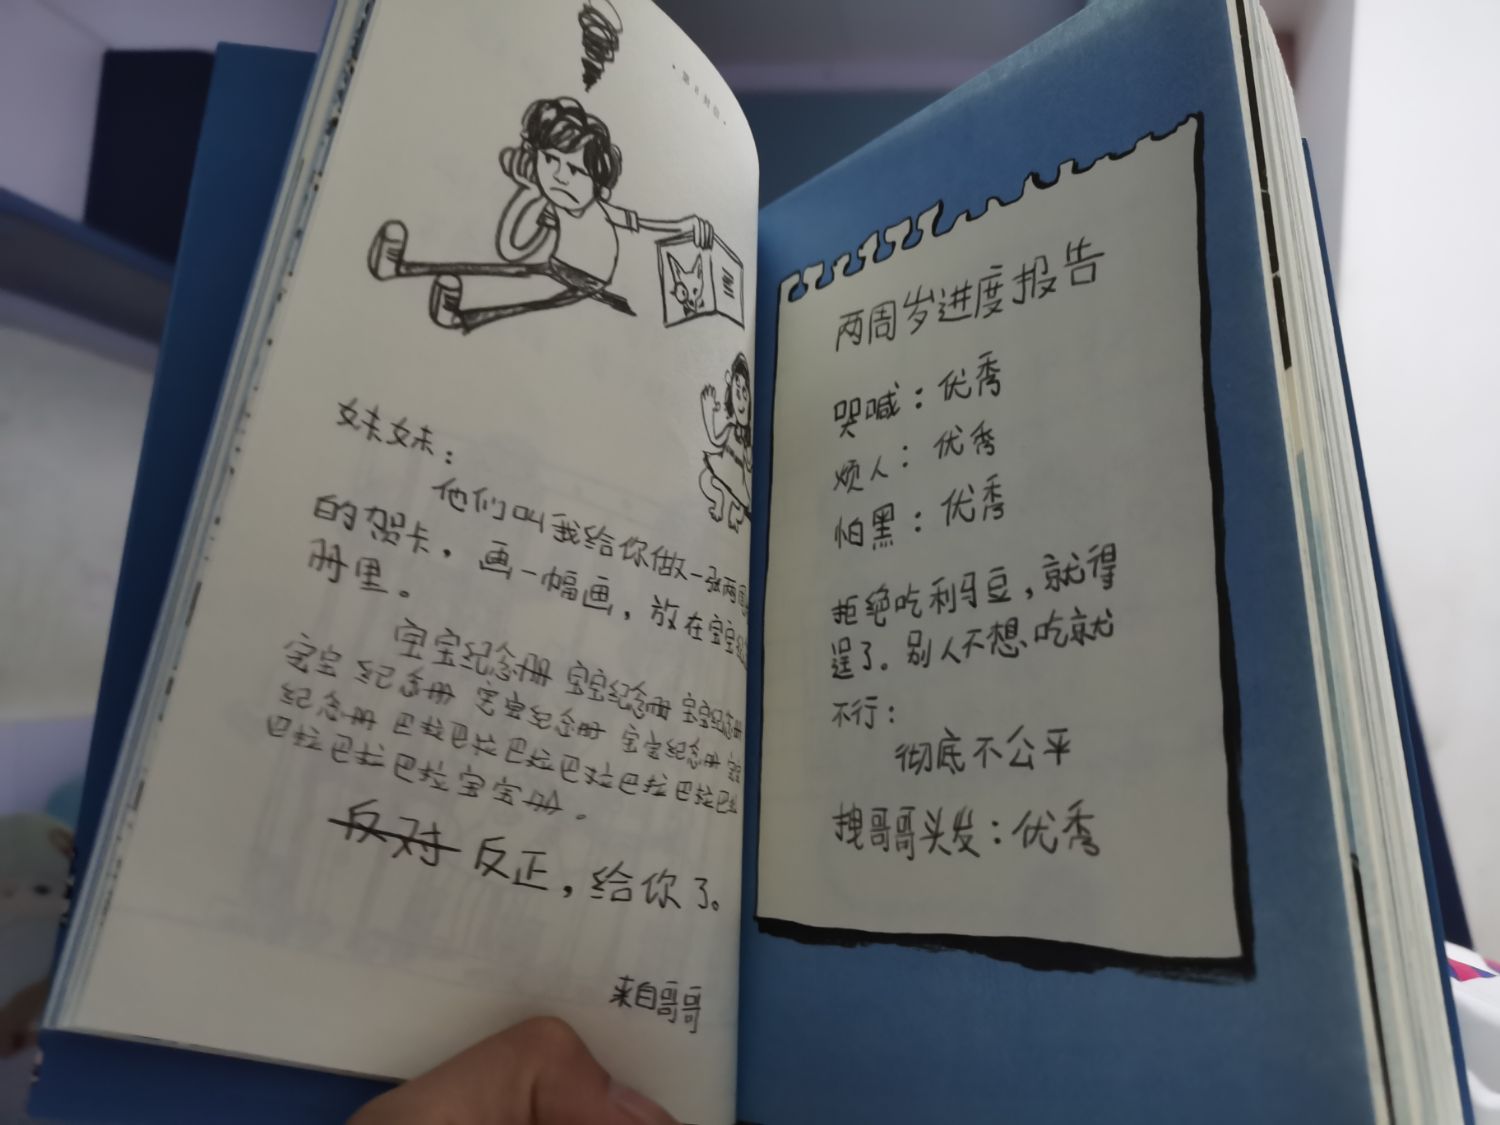 妹妹：
他们叫我给你做一张两周
的贺卡，画一幅画，放在宝宝纪
册里。
宝宝纪念册 宝宝纪念册 宝宝纪念册
宝宝 纪念册 宝宝纪念册 宝宝纪念册 宝
纪念册 巴拉巴拉巴拉巴拉巴拉巴拉巴
巴拉巴拉巴拉宝宝册。
反对 反正，给你了。
来自哥哥
两周岁进度报告
哭喊：优秀
烦人：优秀
怕黑：优秀
拒绝吃利马豆，就得
逞了。别人不想吃就
不行：
彻底不公平
拽哥哥头发：优秀